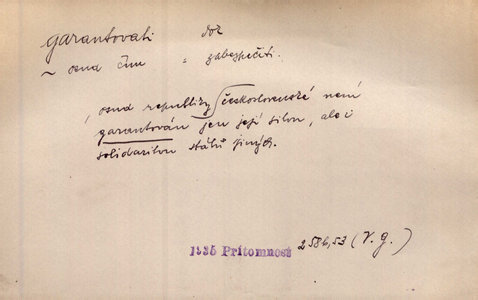 garantovati dok
~ osud čím = zabezpečiti.
, osud republiky československé není
garantován jen její silou, ale i
solidaritou států jiných.
1935 Přítomnost 258b,53 (V. g.)